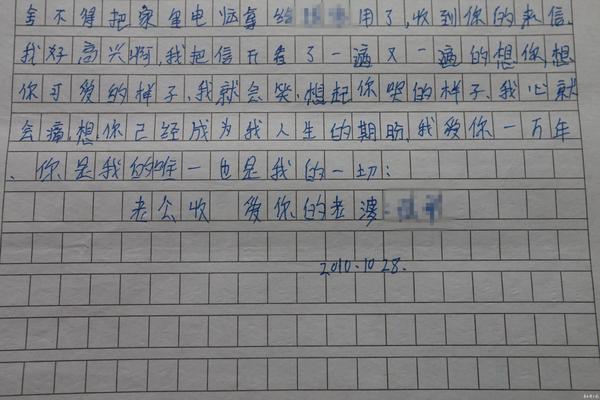 舍不得把家里电脑拿给用了,收到你的来信
我好高兴啊,我把信开看了一遍又一遍的想你,想
你可爱的样子、我就会笑、想起你哭的样子、我心就
会痛、想你已经成为我人生的期盼,我爱你一万年
、你是我的唯一也是我的一切:
老公收 爱你的老婆:
2010.10.28.